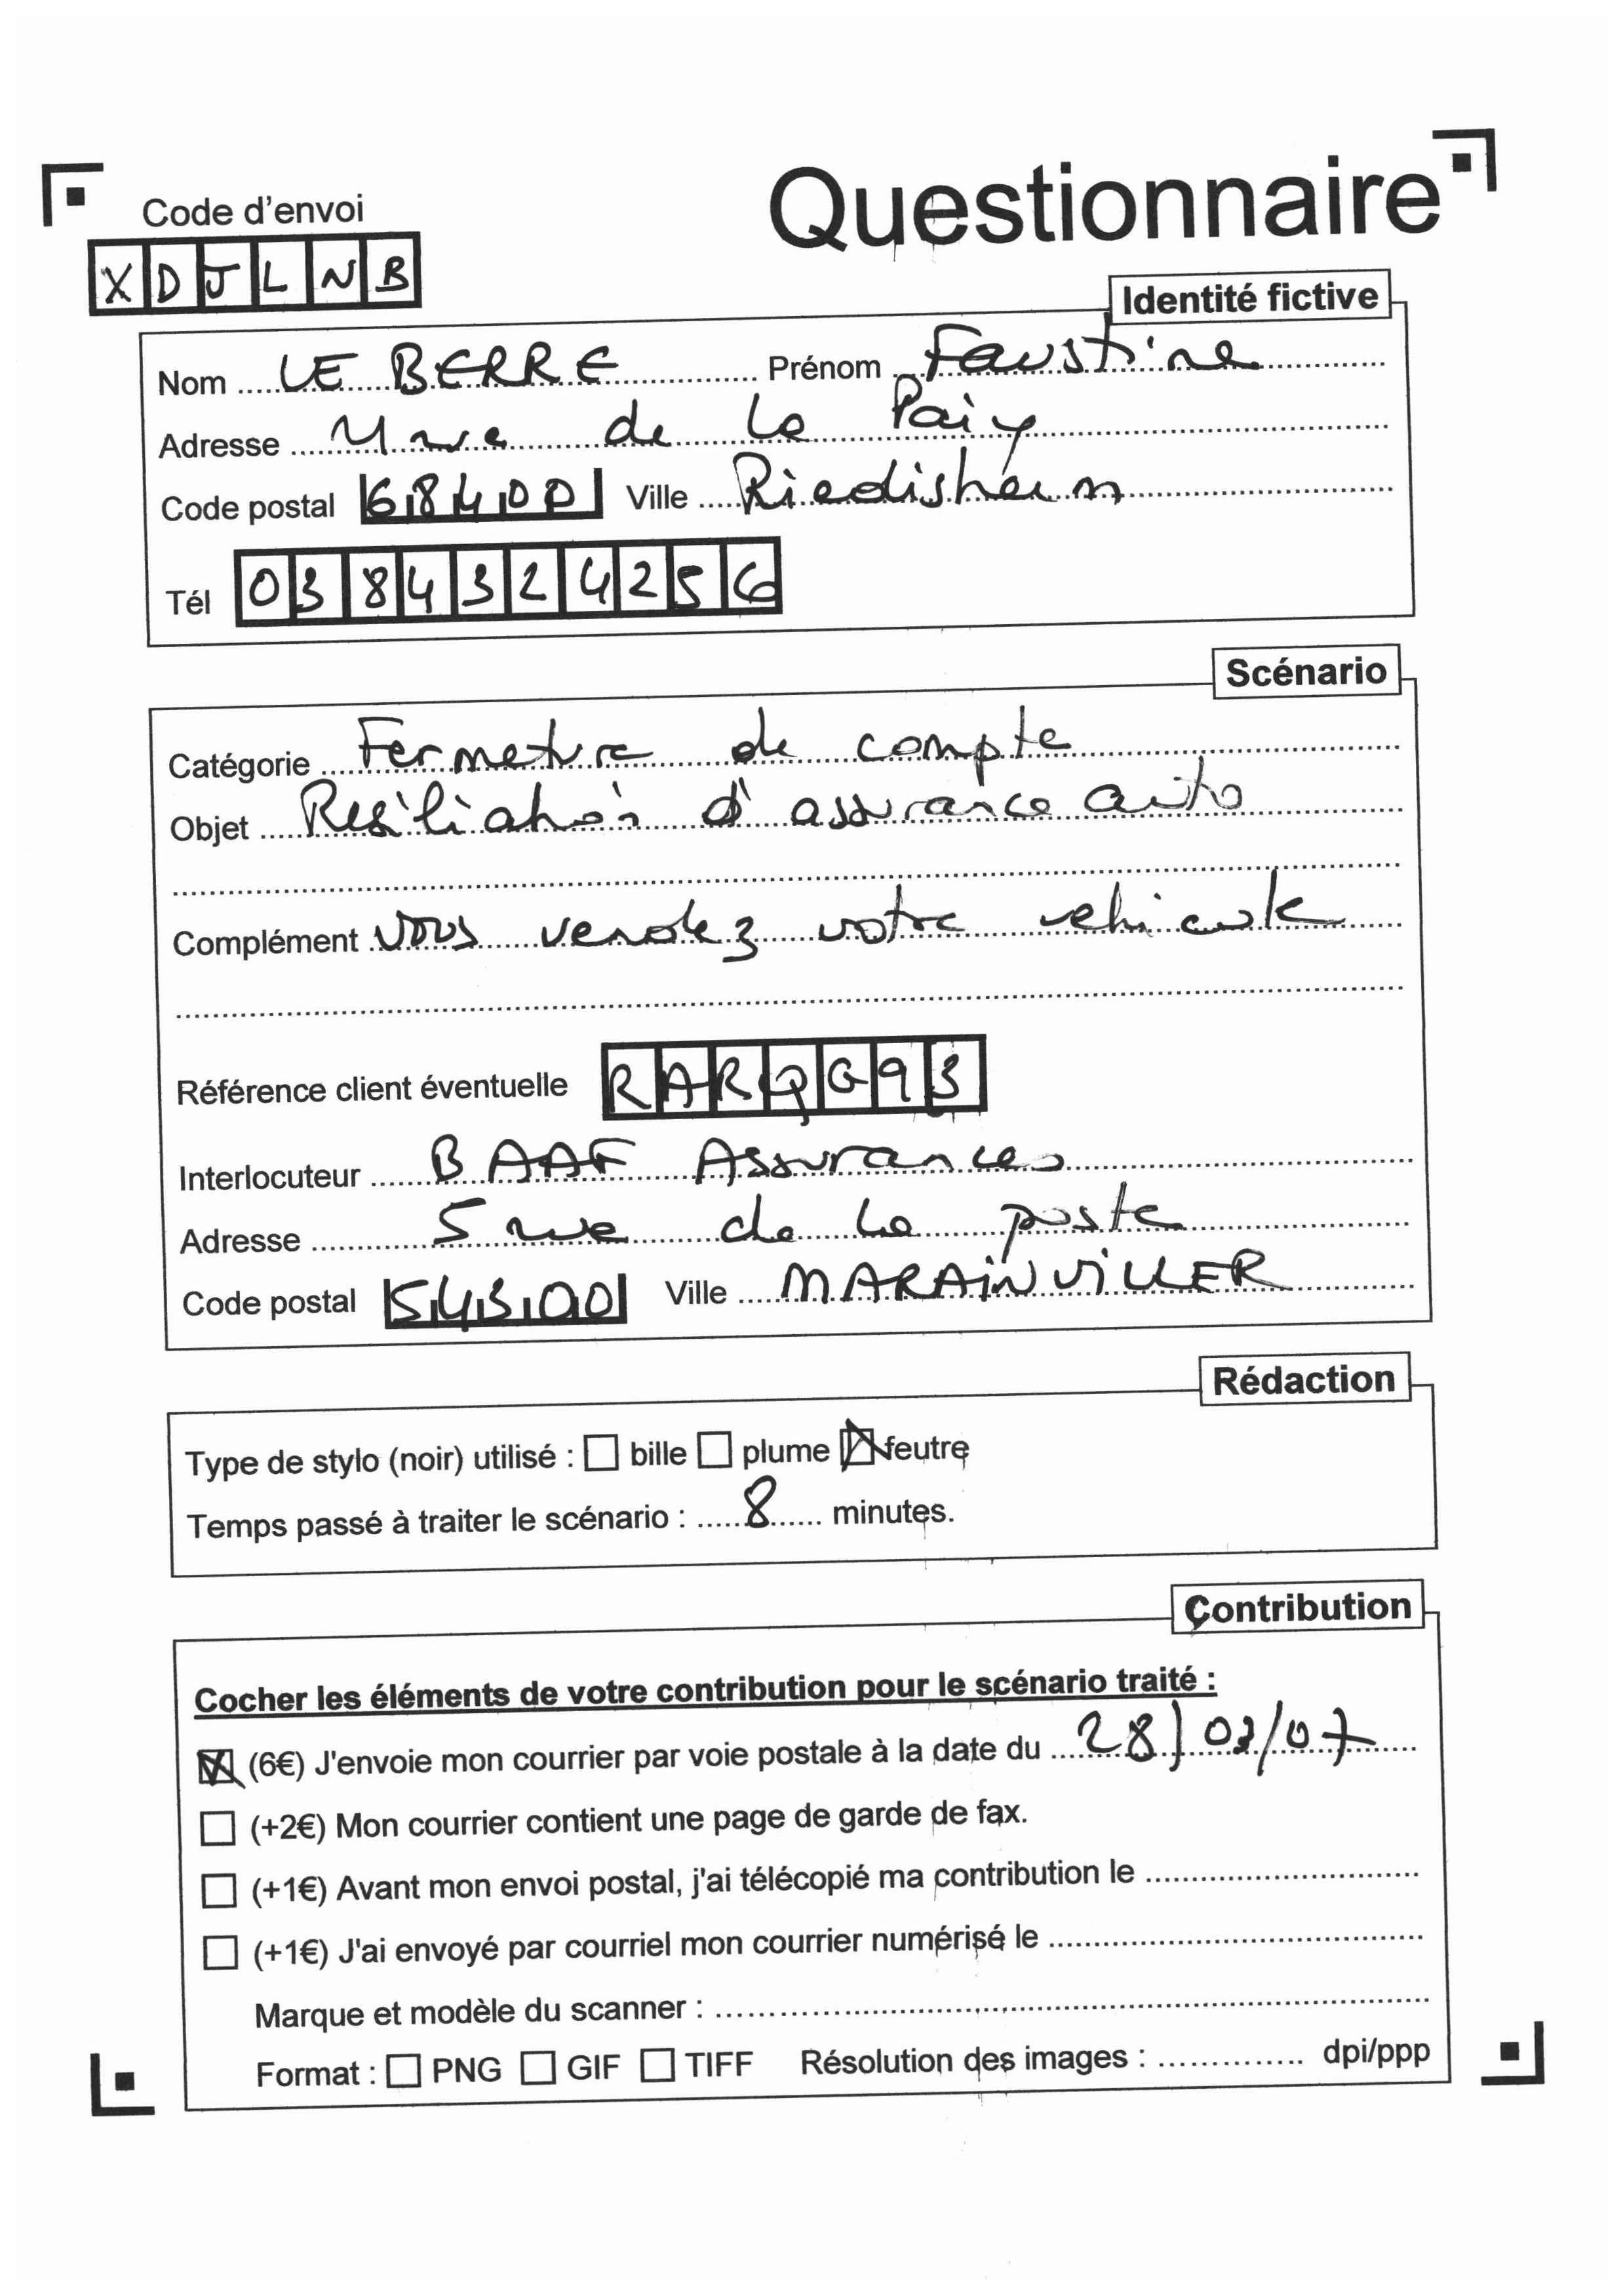 Questionnaire
Code d'envoi
XDJLNB
Identité fictive
Nom LE BERRE Prénom Faustine
Adresse rue de la Paix
Code postal 68400 Ville Riedisheim
Tél 0384324256
Scénario
Catégorie Fermeture de compte
Objet Resiliation d'assurance auto
Complément Vous vendez votre vehicule
Référence client éventuelle RARQG93
Interlocuteur BAAF Assurances
Adresse 5 rue de la poste
Code postal 54300 Ville MARAINVILLER
Rédaction
Type de stylo (noir) utilisé : bille plume feutre
Temps passé à traiter le scénario : 8 minutes.
Contribution
Cocher les éléments de votre contribution pour le scénario traité :
(6€) J'envoie mon courrier par voie postale à la date du
(+2€) Mon courrier contient une page de garde de fax.
(+1€) Avant mon envoi postal, j'ai télécopié ma contribution le
(+1€) J'ai envoyé par courriel mon courrier numérisé le
Marque et modèle du scanner :
Format : PNG GIF TIFF Résolution des images : dpi/ppp